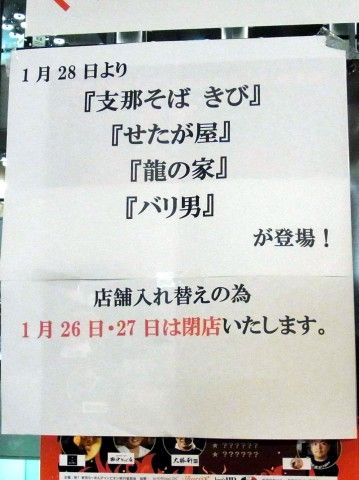 1月28日より
『支那そば きび』
『せたが屋』
『龍の家』
『バリ男』
が登場！
店舗入れ替えの為
1月26日・27日は閉店いたします。
★ ??????
★ ??????